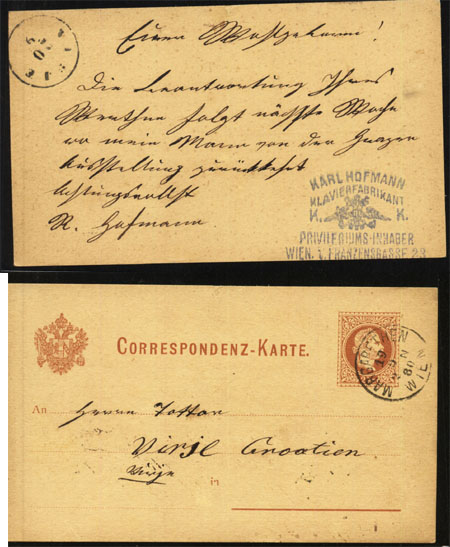 Euer Wohlgeboren!
Die Beantwortung Ihres
Werthen folgt nächste Woche
wo mein Mann von der Grazer
Ausstellung zurückkehrt
Achtungsvollst
R. Hofmann
KARL HOFMANN
KLAVIERFABRIKANT
K. K.
PRIVILEGIUMS-INHABER
WIEN. V. FRANZENSGASSE 23
CORRESPONDENZ-KARTE.
MARGARETHEN
WIEN
An Herrn
Virje Croatien
Virje
in